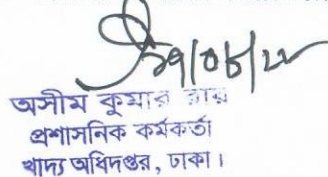 অসীম কুমার রায়
প্রশাসনিক কর্মকর্তা
খাদ্য অধিদপ্তর, ঢাকা।